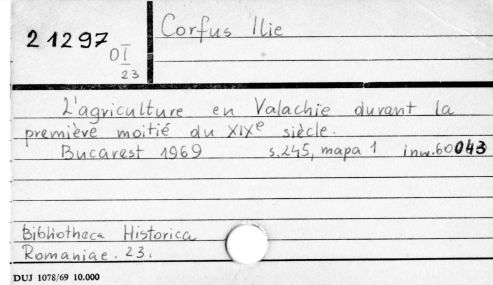 21297
OI
23
Corfus Ilie
L'agriculture en Valachie durant la
première moitié du XIXe siècle.
Bucarest 1969 s.245, mapa 1 inw.60043
Bibliotheca Historica
Romaniae. 23.
DUJ 1078/69 10.000